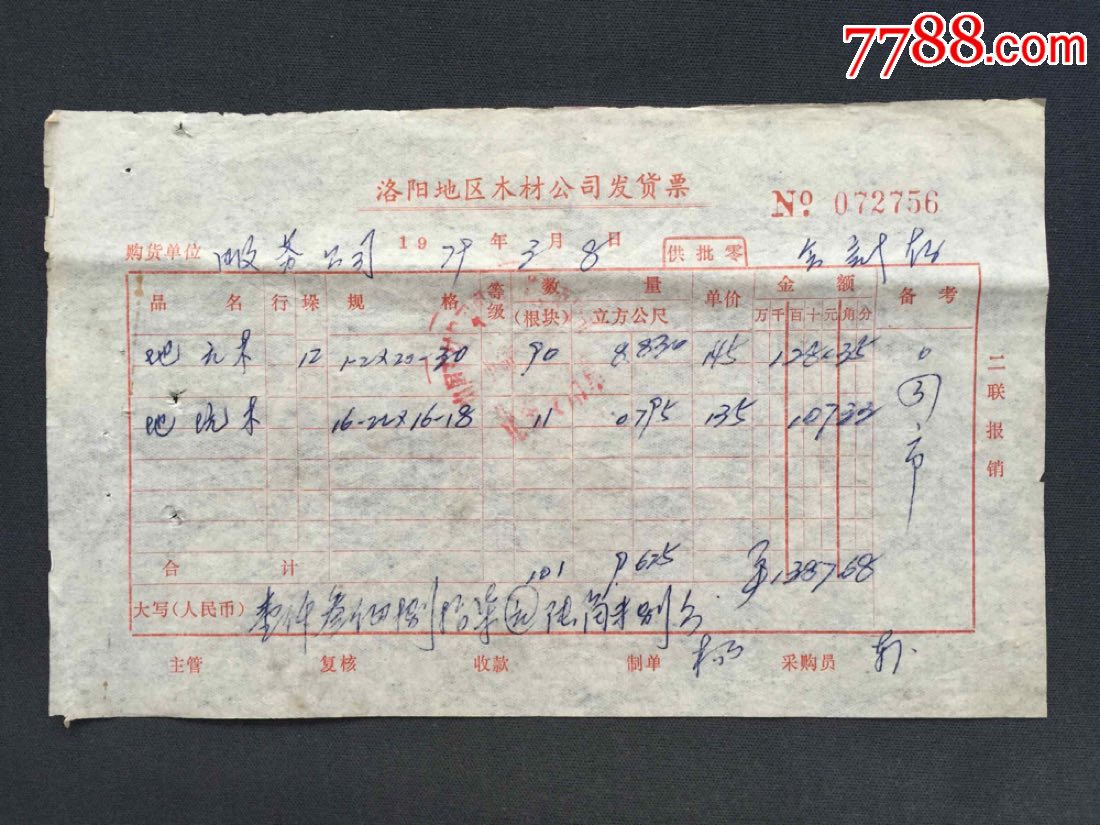 7788.com
洛阳地区木材公司发货票
№ 072756
购货单位 服务公司 1979年3月8日 供批零
品名 行 垛 规格 等级 数量 单价 金额 备考
(根块) 立方公尺 万千百十元角分
地坑木 12 12×22-30 90 8.830 145 1280.35
地坑木 16-22×16-18 11 0.795 135 107.33
合计 101 9.625 1387.68
大写(人民币) 壹仟叁佰捌拾柒元陆角捌分
主管 复核 收款 制单 采购员
二联报销